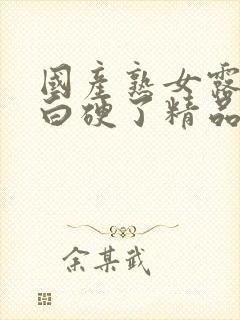 國產熟女露
白硬了精品
余某武